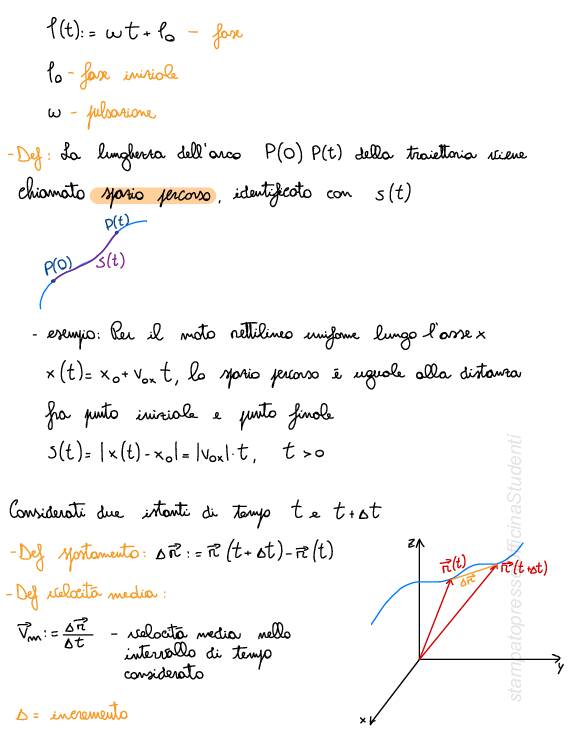 φ(t): = ωt + φ₀ - fase
φ₀ - fase iniziale
ω - pulsazione
- Def: La lunghezza dell'arco P(0) P(t) della traiettoria viene
chiamato spazio percorso, identificato con s(t)
P(t)
P(0)
s(t)
- esempio: Per il moto rettilineo uniforme lungo l'asse x
x(t) = x₀ + v₀ₓ t, lo spazio percorso è uguale alla distanza
fra punto iniziale e punto finale
s(t) = |x(t) - x₀| = |v₀ₓ| · t, t > 0
Considerati due istanti di tempo t e t + Δt
- Def spostamento: Δr⃗ := r⃗(t + Δt) - r⃗(t)
- Def velocità media:
v⃗ₘ := Δr⃗/Δt - velocità media nello
intervallo di tempo
considerato
Δ = incremento
z
r⃗(t)
r⃗(t+Δt)
Δr⃗
y
x